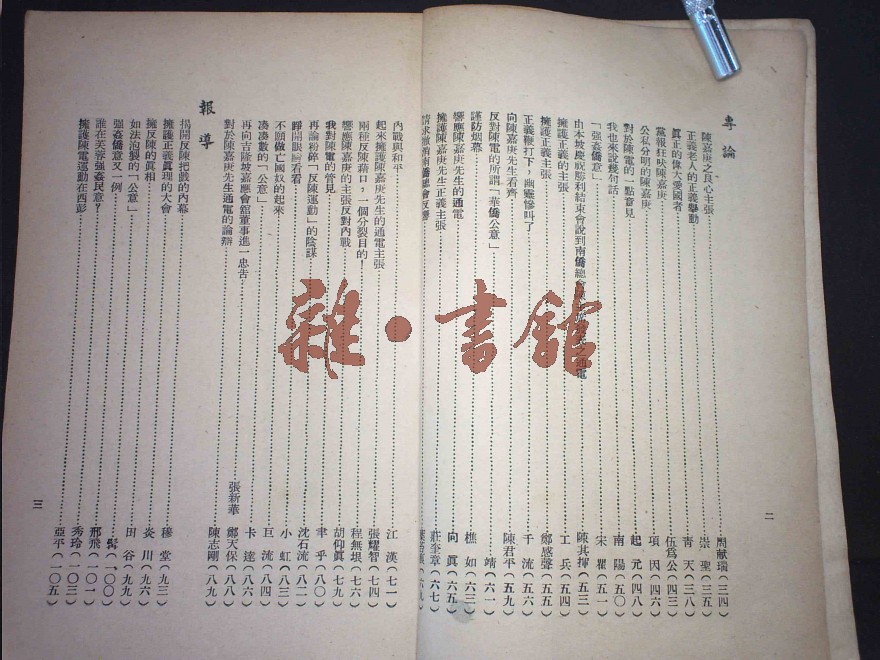 專論
陳嘉庚之良心主張……周献瑞(三四)
正義老人的正義舉動……崇聖(三五)
眞正的偉大愛國者……靑天(三八)
黨報狂吠陳嘉庚……伍爲公(四三)
公私分明的陳嘉庚……項因(四六)
對於陳電的一點意見……起元(四八)
我也來說幾句話……南陽(五〇)
「强姦僑意」……宋瞿(五一)
由本坡慶祝勝利結束會說到南僑總會之通電……陳其揮(五三)
擁護正義的主張……工兵(五四)
擁護正義主張……鄭感聲(五五)
正義鞭打下,幽靈慘叫了……千流(五六)
向陳嘉庚先生看齊……陳君平(五九)
反對陳電的所謂「華僑公意」……靖(六一)
謹防烟幕……樵如(六三)
響應陳嘉庚先生的通電……向眞(六五)
擁護陳嘉庚先生正義主張……莊奎章(六七)
南僑總會……(六九)
二
內戰與和平……江漢(七一)
起來擁護陳嘉庚先生的通電主張……張耀智(七四)
兩種反陳藉口,一個分裂目的!……程無垠(七六)
響應陳嘉庚的主張反對內戰……胡仰眞(七九)
我對陳電的管見……聿乎(八〇)
再論粉碎「反陳運動」的陰謀……沈石流(八二)
睜開眼睛看看……小虹(八三)
不願做亡國奴的起來……巨流(八四)
湊湊數的「公意」……卡達(八六)
再向吉隆坡嘉應會館董事進一忠告……張新華 鄭天保(八八)
對於陳嘉庚先生通電的論辯……陳志剛(八九)
報導
揭開反陳把戲的內幕……穆堂(九三)
擁護正義眞理的大會……炎川(九六)
擁反陳的眞相……田谷(九九)
如法泡製的「公意」……髯(一〇〇)
强姦僑意又一例……邢飛(一〇一)
誰在芙蓉强姦民意?……秀玲(一〇三)
擁護陳電運動在西彭……亞平(一〇五)
三
雜·書館